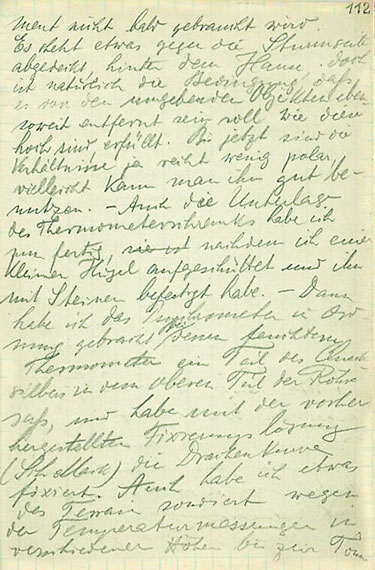 112
ment nicht bald gebraucht wird.
Es steht etwas gegen die Sturmseite
abgedeckt hinter dem Hause, doch
ist natürlich die Bedingung, daß
es von den umgebenden Objekten eben-
soweit entfernt sein soll wie diese
hoch sind erfüllt. Bis jetzt sind die
Verhältnisse ja recht wenig polar,
vielleicht kann man ihn gut be-
nutzen. - Auch die Unterlage
des Thermometerschranks habe ich
nun fertig, nachdem ich einen
kleinen Hügel aufgeschüttet und ihn
mit Steinen befestigt habe. - Dann
habe ich das in Ord-
nung gebracht, bei denen feuchtem
Thermometer ein Teil des Queck-
silbers in dem oberen Teil der Röhre
saß, und habe mit der vorher
hergestellten Fixierungslösung
(Schellack) die Drachenkurve
fixiert. Auch habe ich etwas
das Terrain sondiert wegen
der Temperaturmessungen in
verschiedener Höhen bis zur